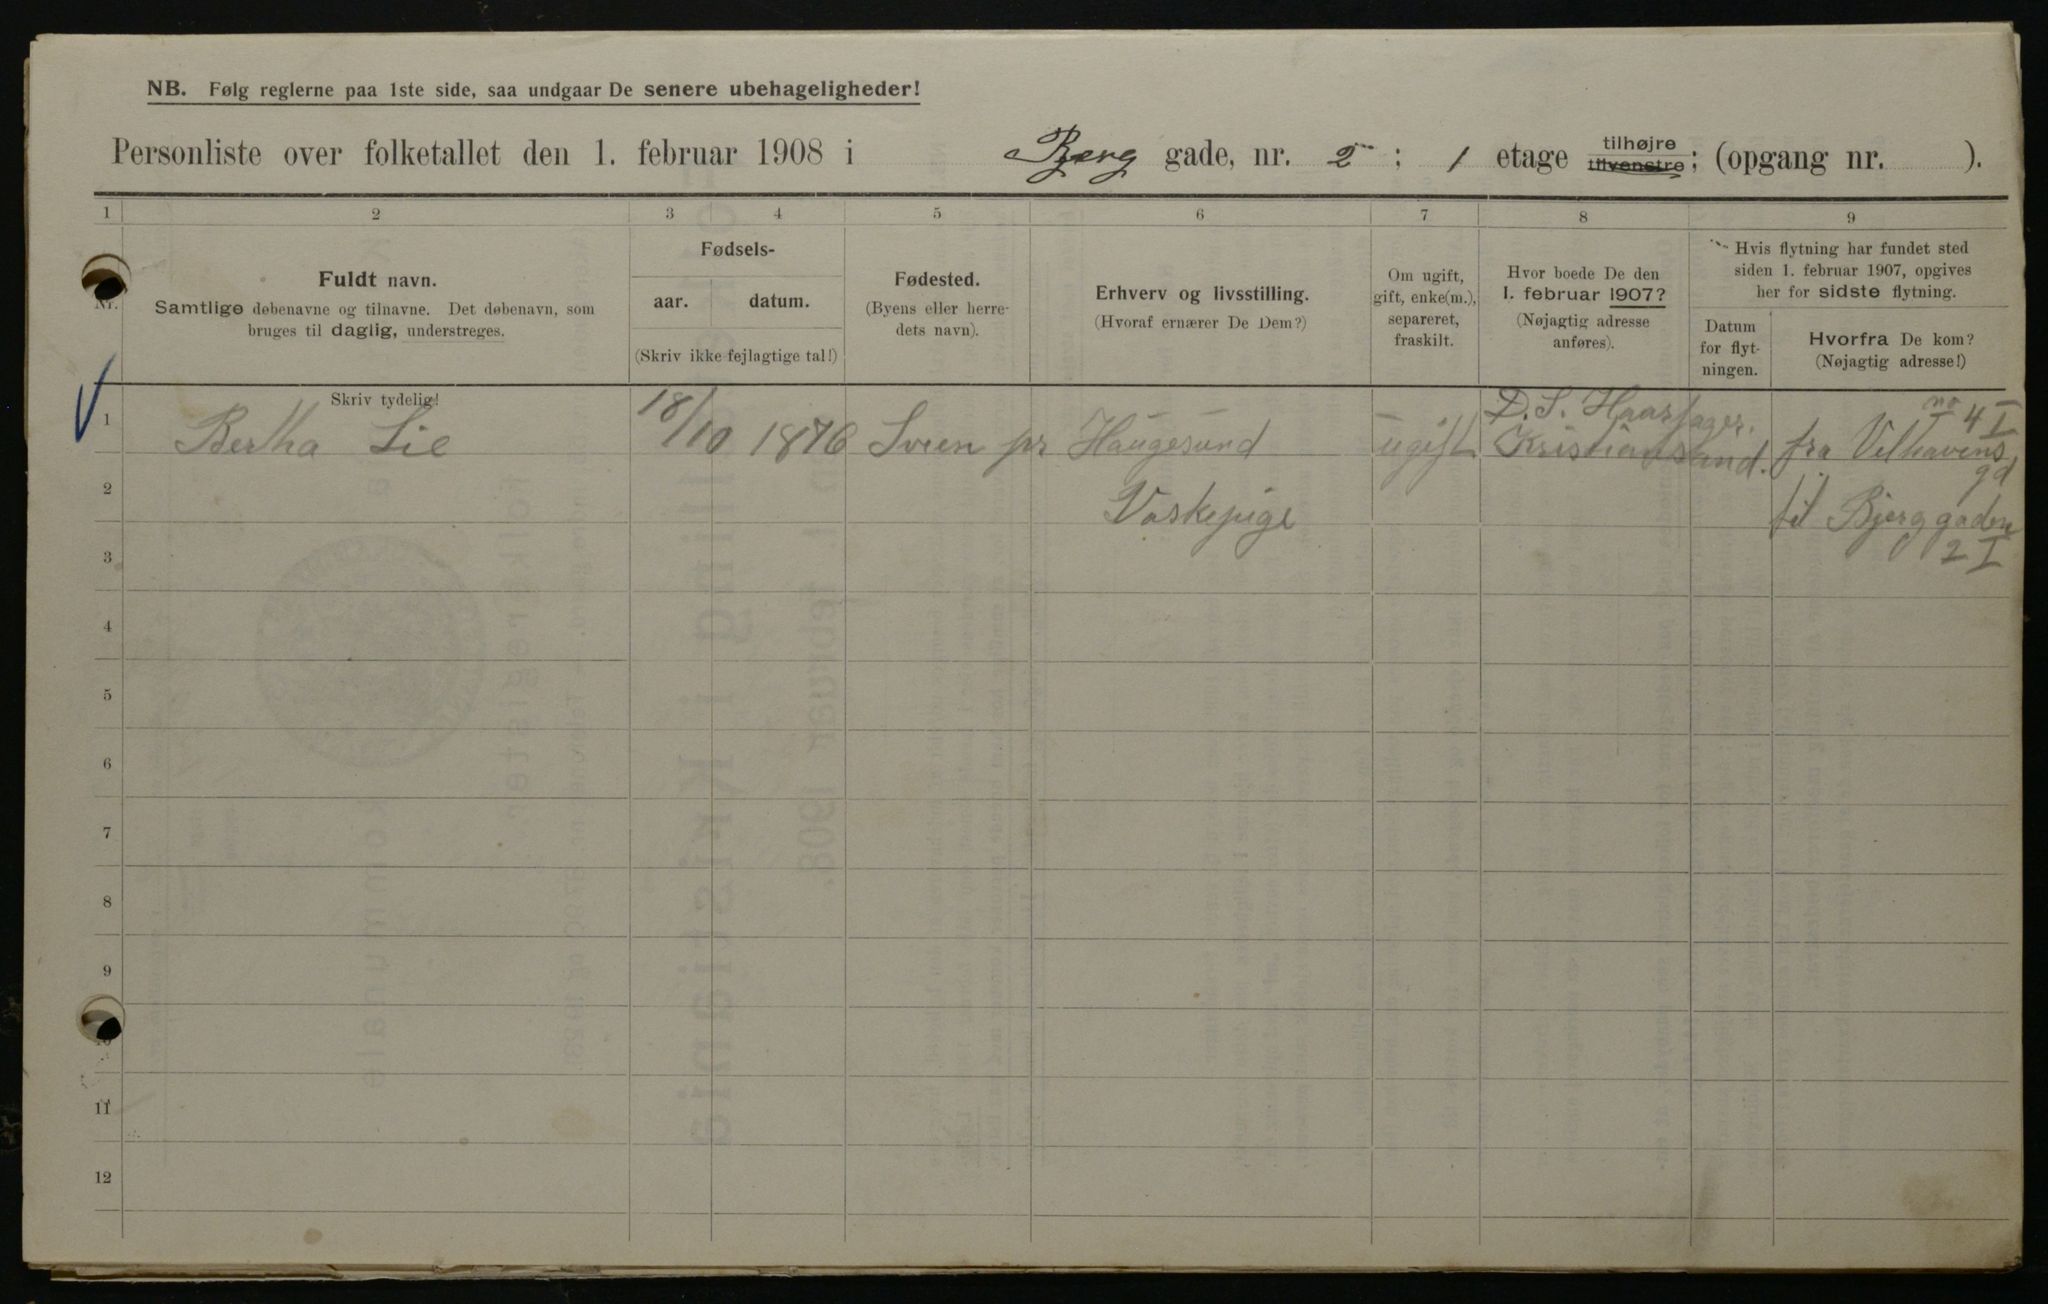 NB. Følg reglerne paa 1ste side, saa undgaar De senere ubehageligheder!
Personliste over folketallet den 1. februar 1908 i Bjerg gade, nr. 2 ; 1 etage tilhøjre tilvenstre; (opgang nr. ).
1 2 3 4 5 6 7 8 9
Nr.
Fuldt navn.
Samtlige døbenavne og tilnavne. Det døbenavn, som
bruges til daglig, understreges.
Fødsels-
aar. datum.
(Skriv ikke fejlagtige tal!)
Fødested.
(Byens eller herre-
dets navn).
Erhverv og livsstilling.
(Hvoraf ernærer De Dem?)
Om ugift,
gift, enke(m.),
separeret,
fraskilt.
Hvor boede De den
1. februar 1907?
(Nøjagtig adresse
anføres).
Hvis flytning har fundet sted
siden 1. februar 1907, opgives
her for sidste flytning.
Datum
for flyt-
ningen.
Hvorfra De kom?
(Nøjagtig adresse!)
Skriv tydelig!
1 Bertha Lie 18/10 1876 Sveen pr Haugesund ugift D. S. Kristiansand. fra Velhavens
no 4 I
gd
2 Vaskepige til Bjerggaden
3 2 I
4
5
6
7
8
9
10
11
12